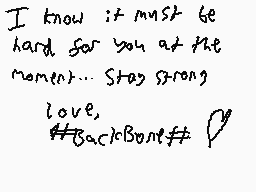 I know it must be
hard for you at the
moment... Stay strong
love,
#BackBone#